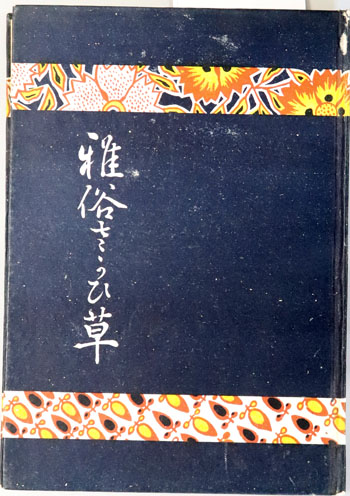 雅俗さかひ草